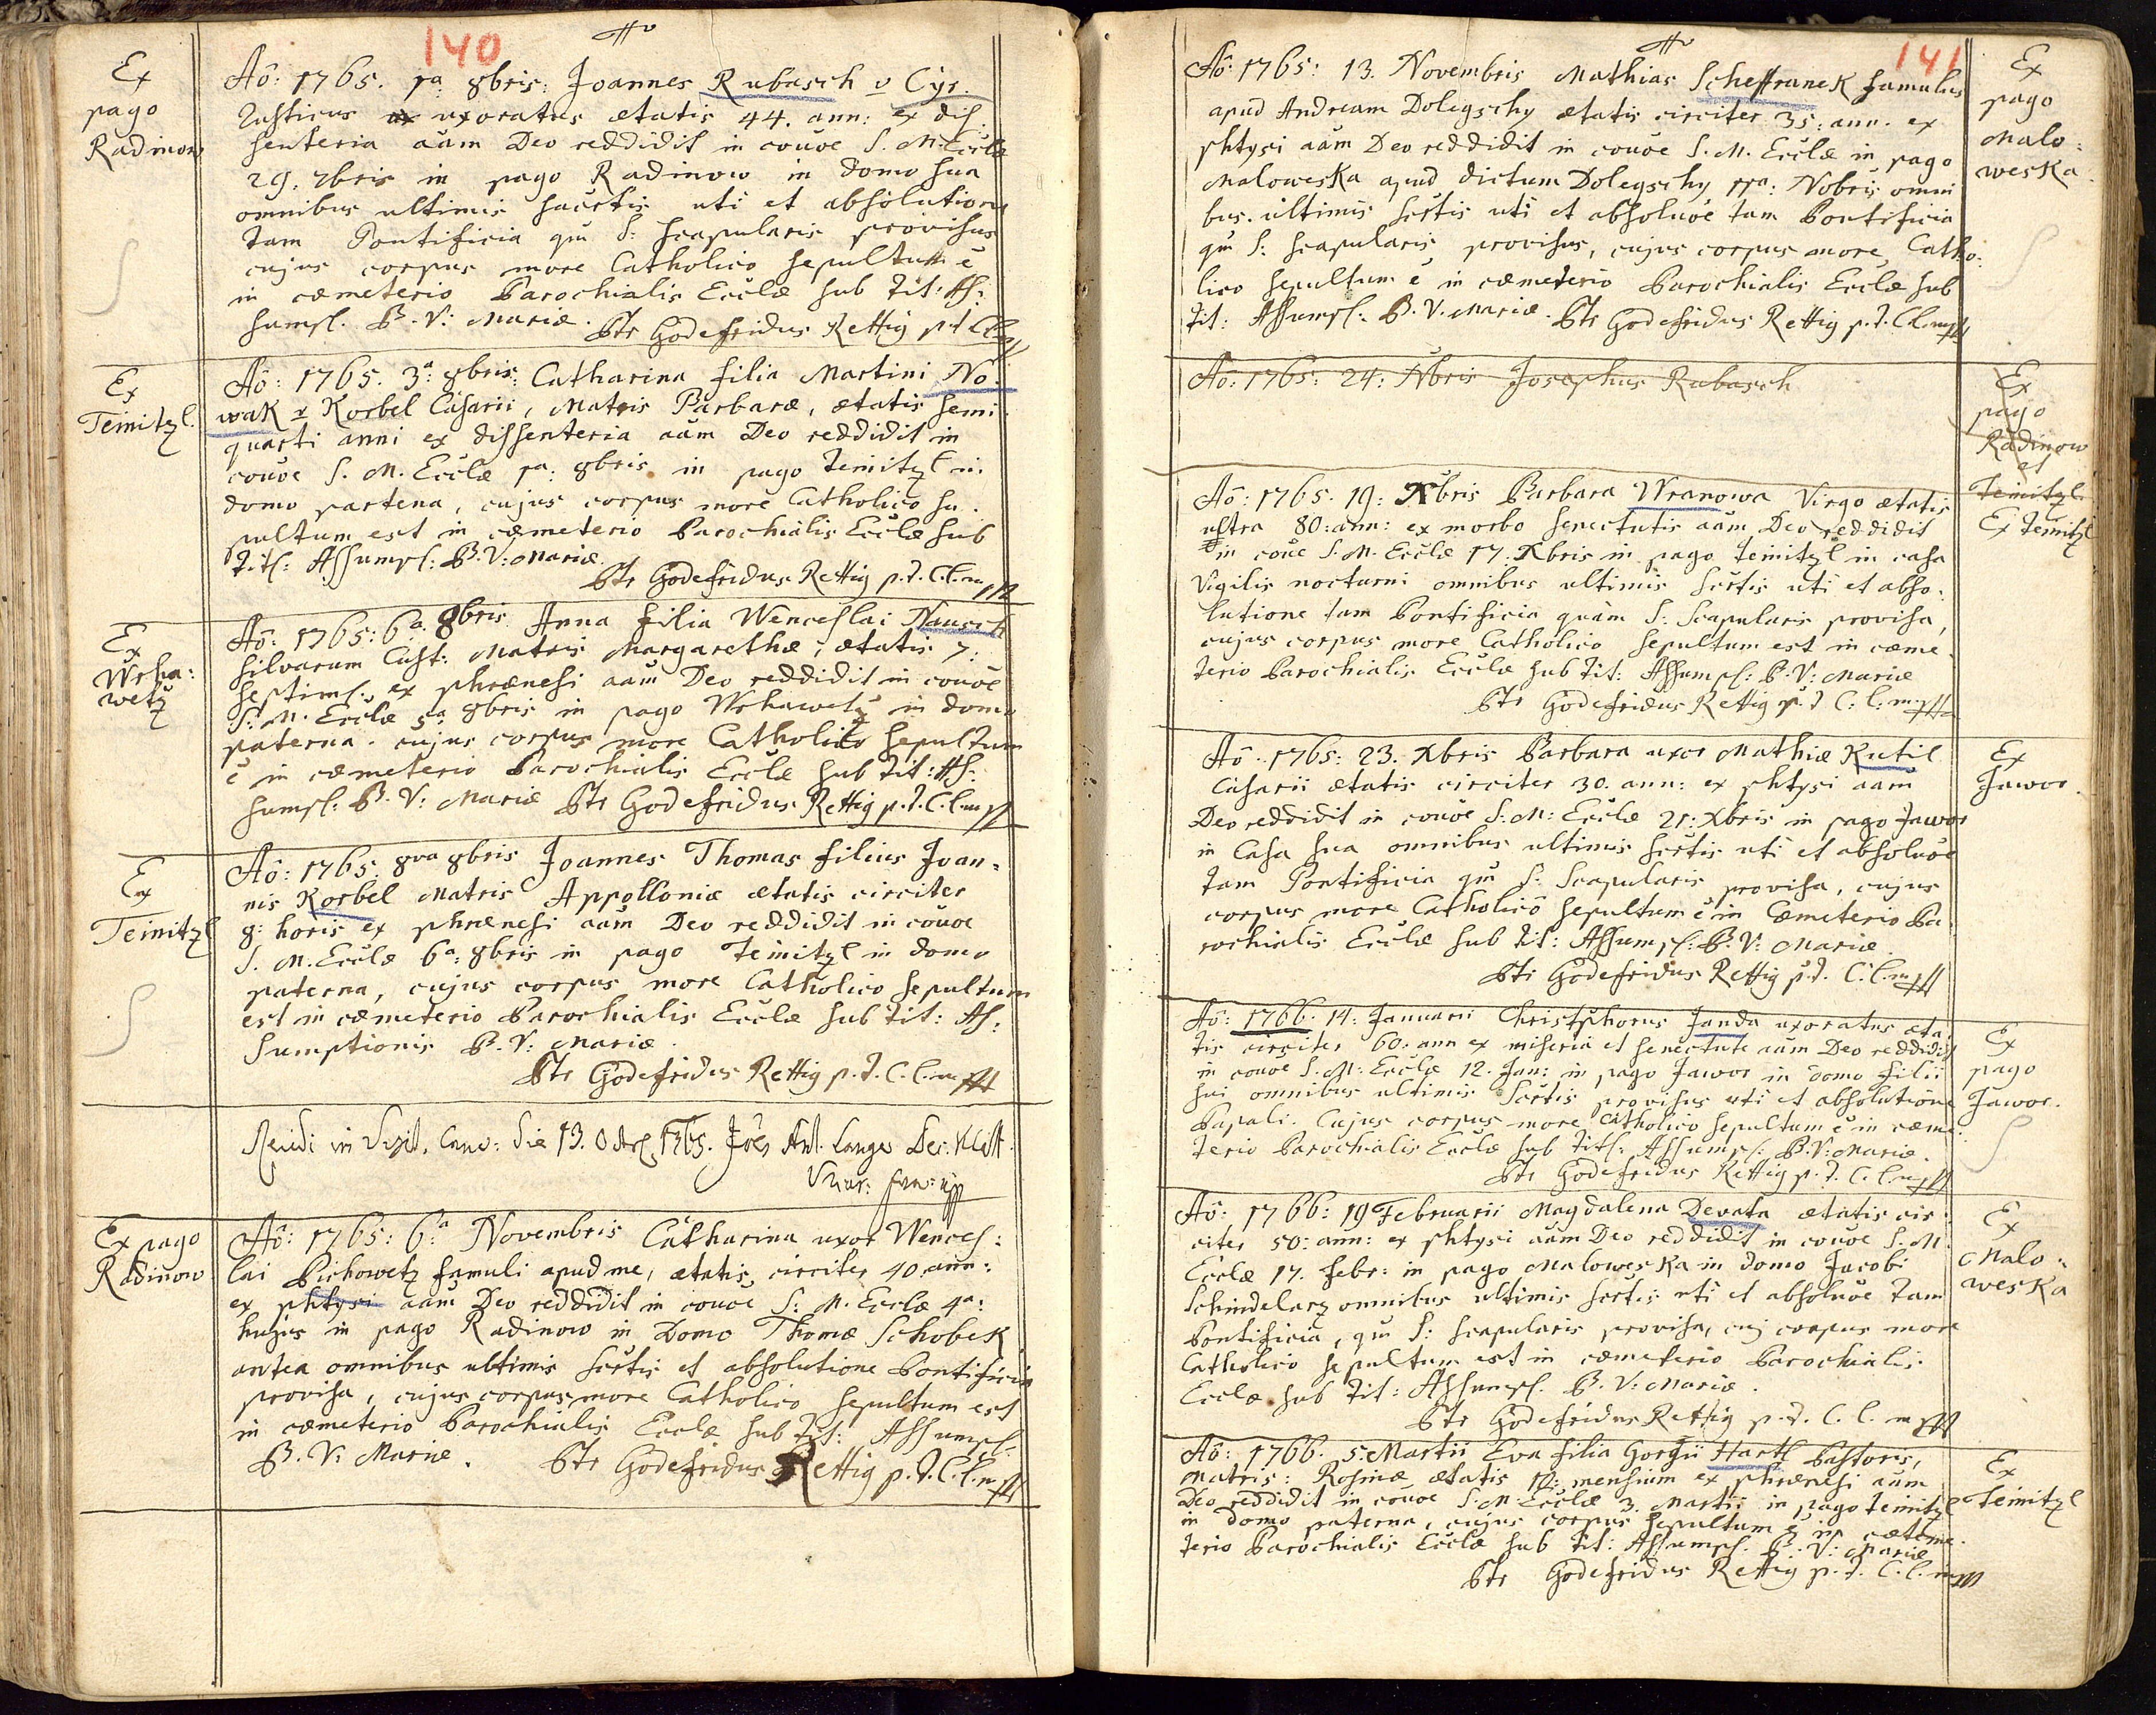 140
Ex
pago
Radinow
Aô: 1765. 1ª 8bris: Joannes Rubasch v Cys:
Rusticus uxoratus ætatis 44. ann: ex dis
senteria aâm Deo reddidit in couõe S. M. Ecclæ
29. 7bris in pago Radinow in domo sua
omnibus ultimis sacrtis uti et absolutione
tam Pontificia qũ S: Scapularis provisus
cujus corpus more Catholico sepultum ē
in cœmeterio Parochialis Ecclæ sub Tit: As:
sumpt. B. V: Mariæ. Ptr Godefridus Rettig p.t. C.l.
Ex
Teinitzl.
Aô: 1765. 3ª: 8bris: Catharina filia Martini No
wak v Korbel Casarii, Matris Barbaræ, ætatis semi
quarti anni ex dissenteria aâm Deo reddidit in
couõe S. M. Ecclæ 1ª: 8bris in pago Teinitzl in
domo partena, cujus corpus more Catholico su.
pultum est in cœmeterio Parochialis Ecclæ sub
Titl: Assumpt: B. V: Mariæ.
Ptr Godefridus Rettig p.t. C.l. m
Ex
Wrha:
wetz
Aô: 1765: 6ª 8bris Anna filia Wenceslai Nausch
silvarum Cust: Matris Margarethæ, ætatis 7:
septim:, ex phrænesi aâm Deo reddidit in couõe
S: M. Ecclæ 5ª 8bris in pago Wrhawetz in domo
paterna. cujus corpus more Catholico sepultum
ē in cœmeterio Parochialis Ecclæ sub Tit: As:
sumpt: B. V: Mariæ Ptr Godefridus Rettig p.t. C.l. m
Ex
Teinitzl
Aô: 1765. 8va 8bris Joannes Thomas filius Joan=
nis Korbel Matris Appolloniæ ætatis circiter
8: horis ex phrænesi aâm Deo reddidit in couõe
S. M. Ecclæ 6ª: 8bris in pago Teinitzl in domo
paterna, cujus corpus more Catholico sepultum
est in cœmeterio Parochialis Ecclæ sub Tit: As:
sumptionis B. V: Mariæ.
Ptr Godefridus Rettig p.t. C.l. m
Revidi in Visit. Cano: die 13. Octobr. 1765. Joês Ant. Lange Dec. Klatt.
Vicar: for:
Ex pago
Radinow
Aô: 1765: 6ª Novembris Catharina uxor Wences:
lai Pichowetz famuli apud me, ætatis circiter 40. ann:
ex phtysi aâm Deo reddidit in couõe S: M. Ecclæ 4ª:
hujus in pago Radinow in Domo Thomæ Schobek
antea omnibus ultimis sacrtis et absolutione Pontificia
provisa, cujus corpus more Catholico sepultum est
in cœmeterio Parochialis Ecclæ sub Tit: Assumpt.
B. V: Mariæ. Ptr Godefridus Rettig p.t. C.l. m
141
Aô: 1765: 13. Novembris Mathias Scheffranek famulus
apud Andream Dolegschy ætatis circiter 35: ann. ex
phtysi aâm Deo reddidit in couõe S. M. Ecclæ in pago
Maloweska apud dictum Dolegschy 11ª: Nobris omni
bus. ultimis sactis uti et absoluõe tam Pontificia
qũ S: Scapularis, provisus, cujus corpus more Catho:
lico sepultum ē in cœmeterio Parochialis Ecclæ sub
Tit: Assumpt: B. V. Mariæ. Ptr Godefridus Rettig p.t. C.l. m
Ex
pago
Malo:
weska
Aô: 1765: 24: Nbris Josephus Rubasch
Ex
pago
Radinow
et
Teinitzl
Aô: 1765. 19: Xbris Barbara Wranowa Virgo ætatis
ultra 80: ann: ex morbo senectutis aâm Deo reddidit
in couõe S. M. Ecclæ 17. Xbris in pago Teinitzl in casa
Vigilis nocturni omnibus ultimis sactis uti et abso.
lutione tam Pontificia quàm S: Scapularis provisa,
cujus corpus more Catholico sepultum est in cœme.
terio Parochialis Ecclæ sub Tit: Assumpt: B. V: Mariæ
Ptr Godefridus Rettig p.t C: l: m
Ex Teinitzl
Aô: 1765: 23. Xbris Barbara uxor Mathiæ Kutil
Casarii ætatis circiter 30. ann: ex phtysi aâm
Deo reddidit in couõe S: M: Ecclæ 21: Xbris in pago Jawor
in Casa sua omnibus ultimis sactis uti et absoluõe
tam Pontificia qũ S. Scapularis provisa, cujus
corpus more Catholicô sepultum ē in Cœmeterio Pa
rochialis Ecclæ sub Tit: Assumpt: B. V: Mariæ
Ptr Godefridus Rettig p.t. C: l. m
Ex
Jawor.
Aô: 1766. 14: Januarii Christphorus Janda uxoratus æta
tis circiter 60: ann ex miseria et senectute aâm Deo reddidit
in couõe S. M: Ecclæ 12. Jan: in pago Jawor in domo filii
sui omnibus ultimis sactis provisus uti et absolutione
Papali. Cujus corpus more Catholico sepultum ē in cœme
terio Parochialis Ecclæ sub Titl: Assumpt: B. V: Mariæ.
Ptr Godefridus Rettig p.t. C. l. m
Ex
pago
Jawor.
Aô: 1766: 19 Februarii Magdalena Devata ætatis cir
citer 50: ann: ex phtysi aâm Deo reddidit in couõe S. M.
Ecclæ 17. Febr: in pago Maloweska in domo Jacobi
Schindelarz omnibus ultimis sactis uti et absoluõe tam
Pontificia, qũ S: Scapularis provisa, cuj corpus more
Catholico sepultum est in cœmeterio Parochialis
Ecclæ sub Tit: Assumpt. B. V: Mariæ.
Ptr Godefridus Rettig p.t. C. l. m
Ex
Malo:
weska
Aô: 1766. 5. Martii Eva filia Gorgii Hartl Pastoris,
Matris: Rosinæ ætatis 10: mensium ex phrænesi aâm
Deo reddidit in couõe S. M. Ecclæ 3. Martii in pago Teinitzl
in domo paterna, cujus corpus sepultum ē in cœteme.
terio Parochialis Ecclæ sub Tit: Assumpt. B. V: Mariæ
Ptr Godefridus Rettig p.t. C. l. m
Ex
Teinitzl